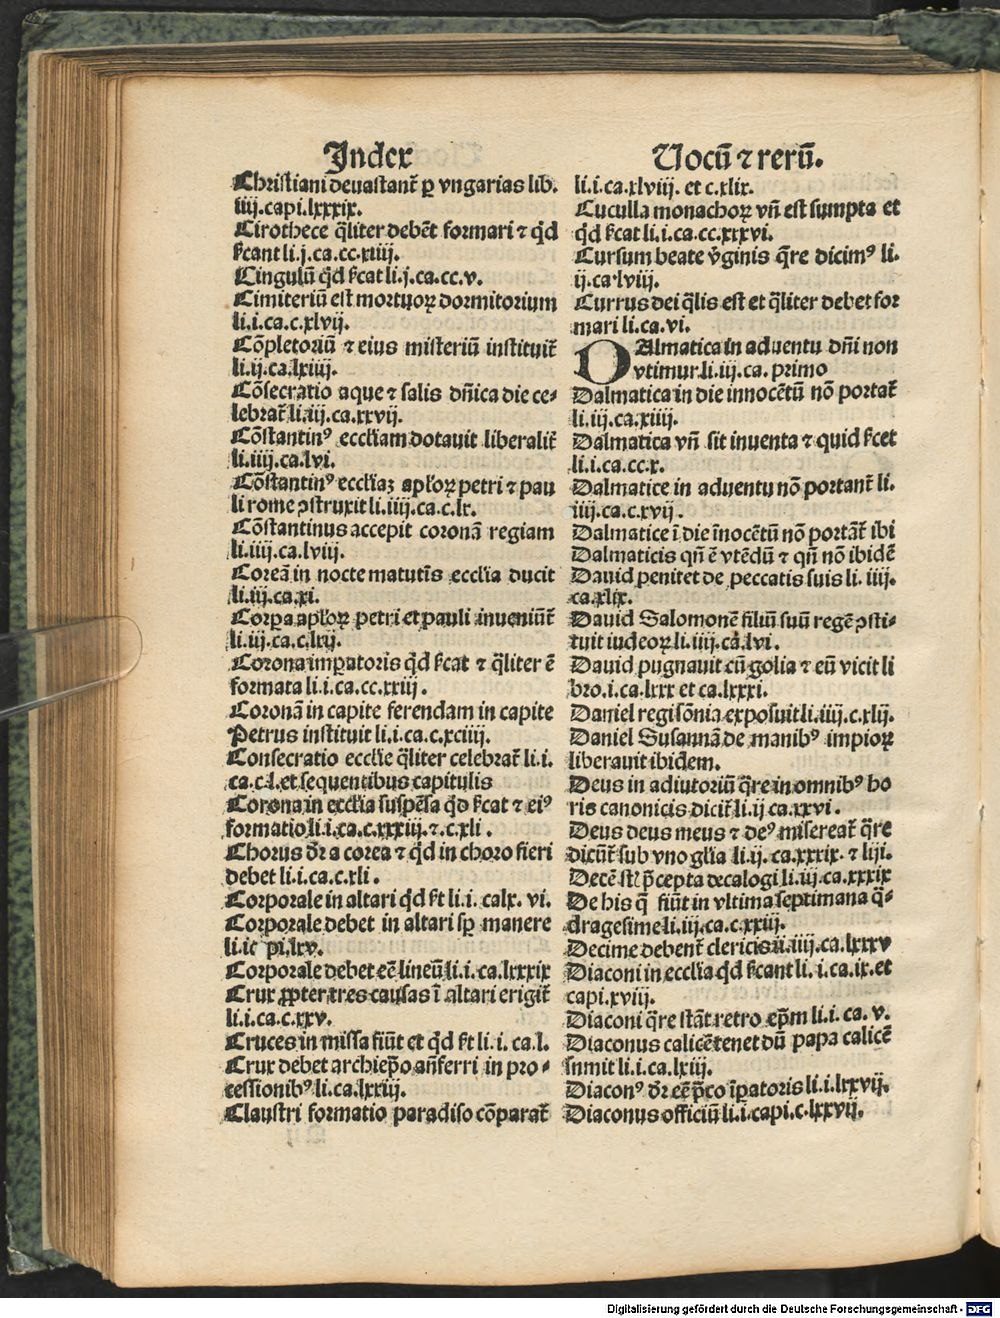 Index
Christiani deuastant᷑ ꝑ vngarias lib.
iiij.capi.lxxxix.
Cirothece q̄liter debēt formari ⁊ qd̄
ſc̄ant li.j.ca.cc.xiiij.
Cingulū qd̄ ſc̄at li.j.ca.cc.v.
Cimiteriū eſt mortuoꝝ dormitorium
li.i.ca.c.xlvij.
Cōpletoriū ⁊ eius miſteriū inſtituit᷑
li.ij.ca.lxiiij.
Cōſecratio aque ⁊ ſalis dn̄ica die ce⸗
lebrat᷑ li.iij.ca.xxvij.
Cōſtantinꝰ eccl̄iam dotauit liberalit᷑
li.iiij.ca.lvi.
Cōſtantinꝰ eccl̄iaꝫ apl̄oꝝ petri ⁊ pau
li rome ↄſtruxit li.iiij.ca.c.lx.
Cōſtantinus accepit coronā regiam
li.iiij.ca.lviij.
Coreā in nocte matutīs eccl̄ia ducit
li.iij.ca.xi.
Corpa apl̄oꝝ petri et pauli inueniūt᷑
li.iij.ca.c.lxij.
Corona impatoris qd̄ ſc̄at ⁊ q̄liter ē
formata li.i.ca.cc.xxiij.
Coronā in capite ferendam in capite
Petrus inſtituit li.i.ca.c.xciiij.
Conſecratio eccl̄ie q̄liter celebrat᷑ li.i.
ca.c.l.et ſequentibus capitulis
Corona in eccl̄ia ſuſpēſa qd̄ ſc̄at ⁊ eiꝰ
formatio li.i.ca.c.xxxiij.⁊.c.xli.
Chorus dr̄ a corea ⁊ qd̄ in choro fieri
debet li.i.ca.c.xli.
Corporale in altari qd̄ ſt᷑ li.i. calx. vi.
Corporale debet in altari ſꝑ manere
li.ic pi.lxv.
Corporale debet eē lineū li.i.ca.lxxxix
Crux ꝓpter tres cauſas ī altari erigit᷑
li.i.ca.c.xxv.
Cruces in miſſa fiūt et qd̄ ſt᷑ li.i. ca.l.
Crux debet archiep̄o an̄ferri in pro⸗
ceſſionibꝰ li.ca.lxxiij.
Clauſtri formatio paradiſo cōparat᷑
Uocū ⁊ rerū.
li.i.ca.xlviij. et c.xlix.
Cuculla monachoꝝ vn̄ eſt ſumpta et
qd̄ ſc̄at li.i.ca.cc.xxxvi.
Curſum beate v̄ginis q̄re dicimꝰ li.
ij.ca.lviij.
Currus dei q̄lis eſt et q̄liter debet for
mari li.ca.vi.
DAlmatica in aduentu dn̄i non
vtimur.li.iij.ca. primo
Dalmatica in die innocētū nō portat᷑
li.iij.ca.xiiij.
Dalmatica vn̄ ſit inuenta ⁊ quid ſc̄et
li.i.ca.cc.x.
Dalmatice in aduentu nō portant᷑ li.
iiij.ca.c.xvij.
Dalmatice ī die īnocētū nō portāt᷑ ibi
Dalmaticis qn̄ ē vtēdū ⁊ qn̄ nō ibidē
Dauid penitet de peccatis ſuis li. iiij.
ca.xlix.
Dauid Salomonē filiū ſuū regē ↄſti⸗
tuit iudeoꝝ li.iiij.ca.lvi.
Dauid pugnauit cū golia ⁊ eū vicit li
bro.i.ca.lxxx et ca.lxxxi.
Daniel regi ſōnia expoſuit li.iiij.c.xlij.
Daniel Suſannā de manibꝰ impioꝝ
liberauit ibidem.
Deus in adiutoriū q̄re in omnibꝰ ho
ris canonicis dicit᷑ li.ij ca.xxvi.
Deus deus meus ⁊ deꝰ miſereat᷑ q̄re
dicūt᷑ ſub vno gl̄ia li.ij. ca.xxxix. ⁊ liij.
Decē p̄cepta decalogi li.iij.ca.xxxix
De his q̄ fiūt in vltima ſeptimana q̄⸗
drageſime li.iij.ca.c.xxiij.
Decime debent᷑ clericis li.iiij.ca.lxxxv
Diaconi in eccl̄ia qd̄ ſc̄ant li. i.ca.ix.et
capi.xviij.
Diaconi q̄re ſtāt retro ep̄m li.i. ca. v.
Diaconus calicē tenet dū papa calicē
ſumit li.i.ca.lxiij.
Diaconꝰ dr̄ eē p̄co īpatoris li.i.lxxvij.
Diaconus officiū li.i.capi.c.lxxvij.
Digitalisierung gefördert durch die Deutsche Forschungsgemeinschaft - DFG